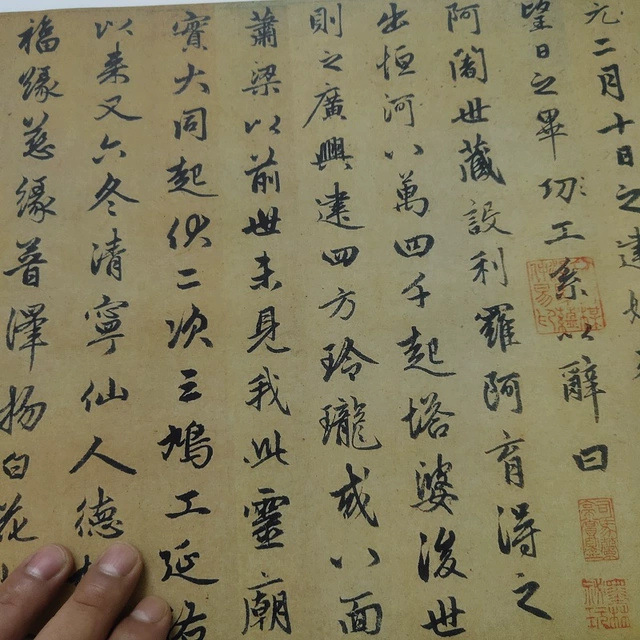 元二月十日之建
望日之畢功工系以辭曰
阿闍世藏設利羅阿育得之
出恒河八萬四千起塔婆後世
則之廣興建四方玲瓏或八面
蕭梁以前世未見我此靈廟
實大同起伏二次三鳩工延
以來又六冬清寧仙人德
福緣慈緣普澤揚白花